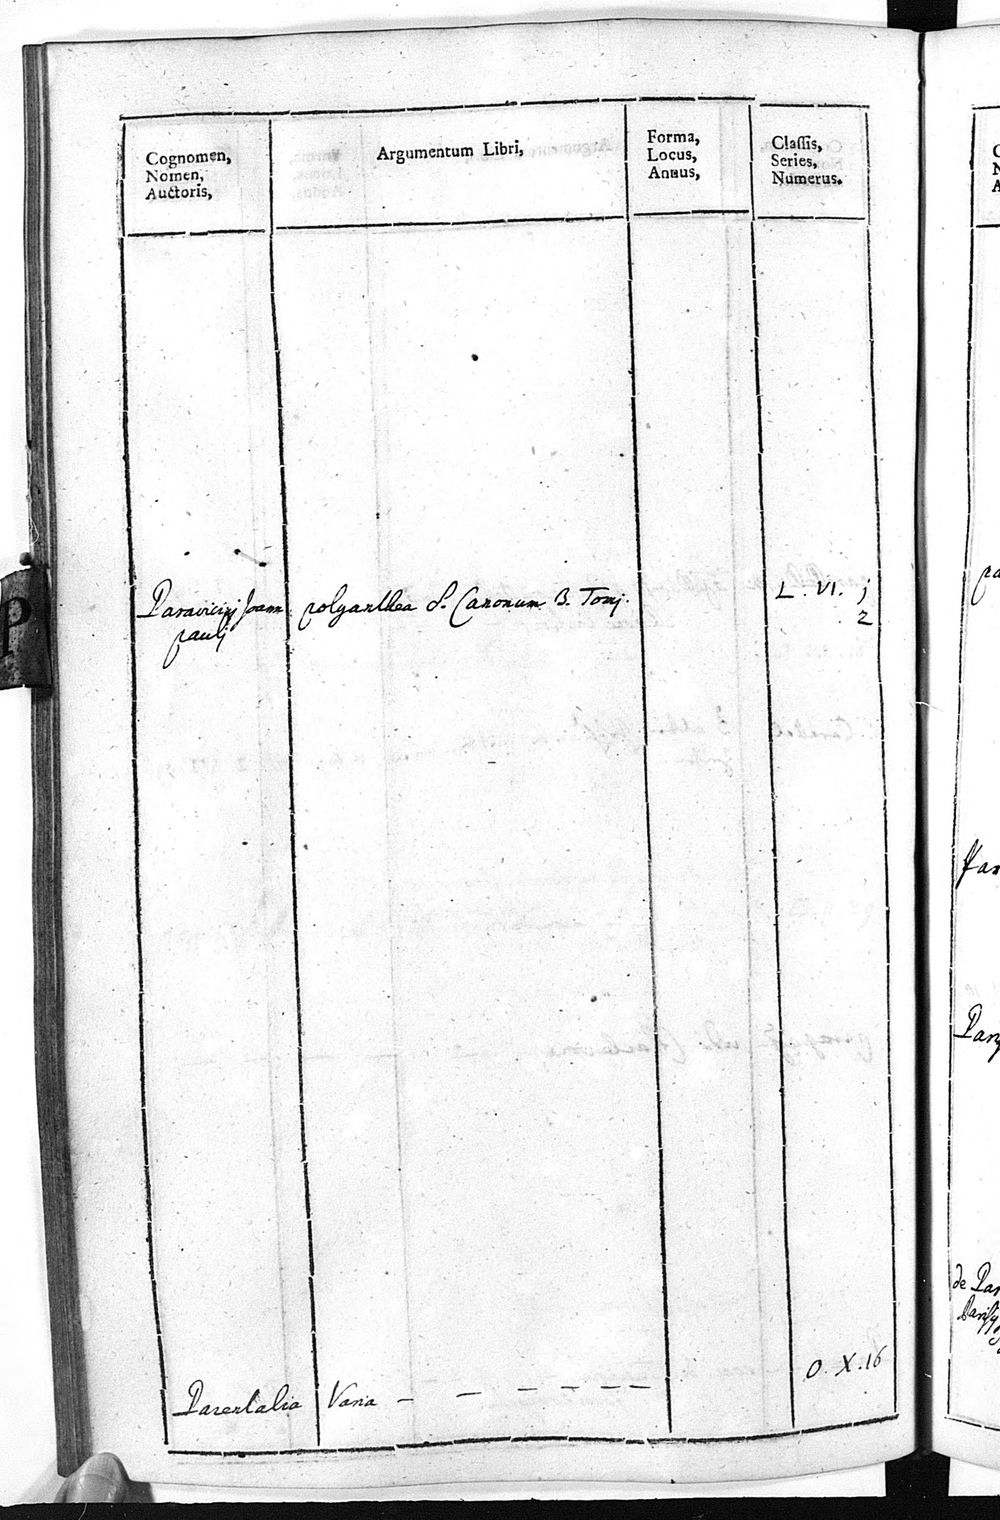 Cognomen,
Nomen,
Auctoris,
Argumentum Libri,
Forma,
Locus,
Annus,
Classis,
Series,
Numerus.
Paravicinj Joann
paulj
polyanthea S. Canonum 3. Tomj.
L. VI. j
2
P
Parentalia Varia — — — — — —
O. X. 16
de Par